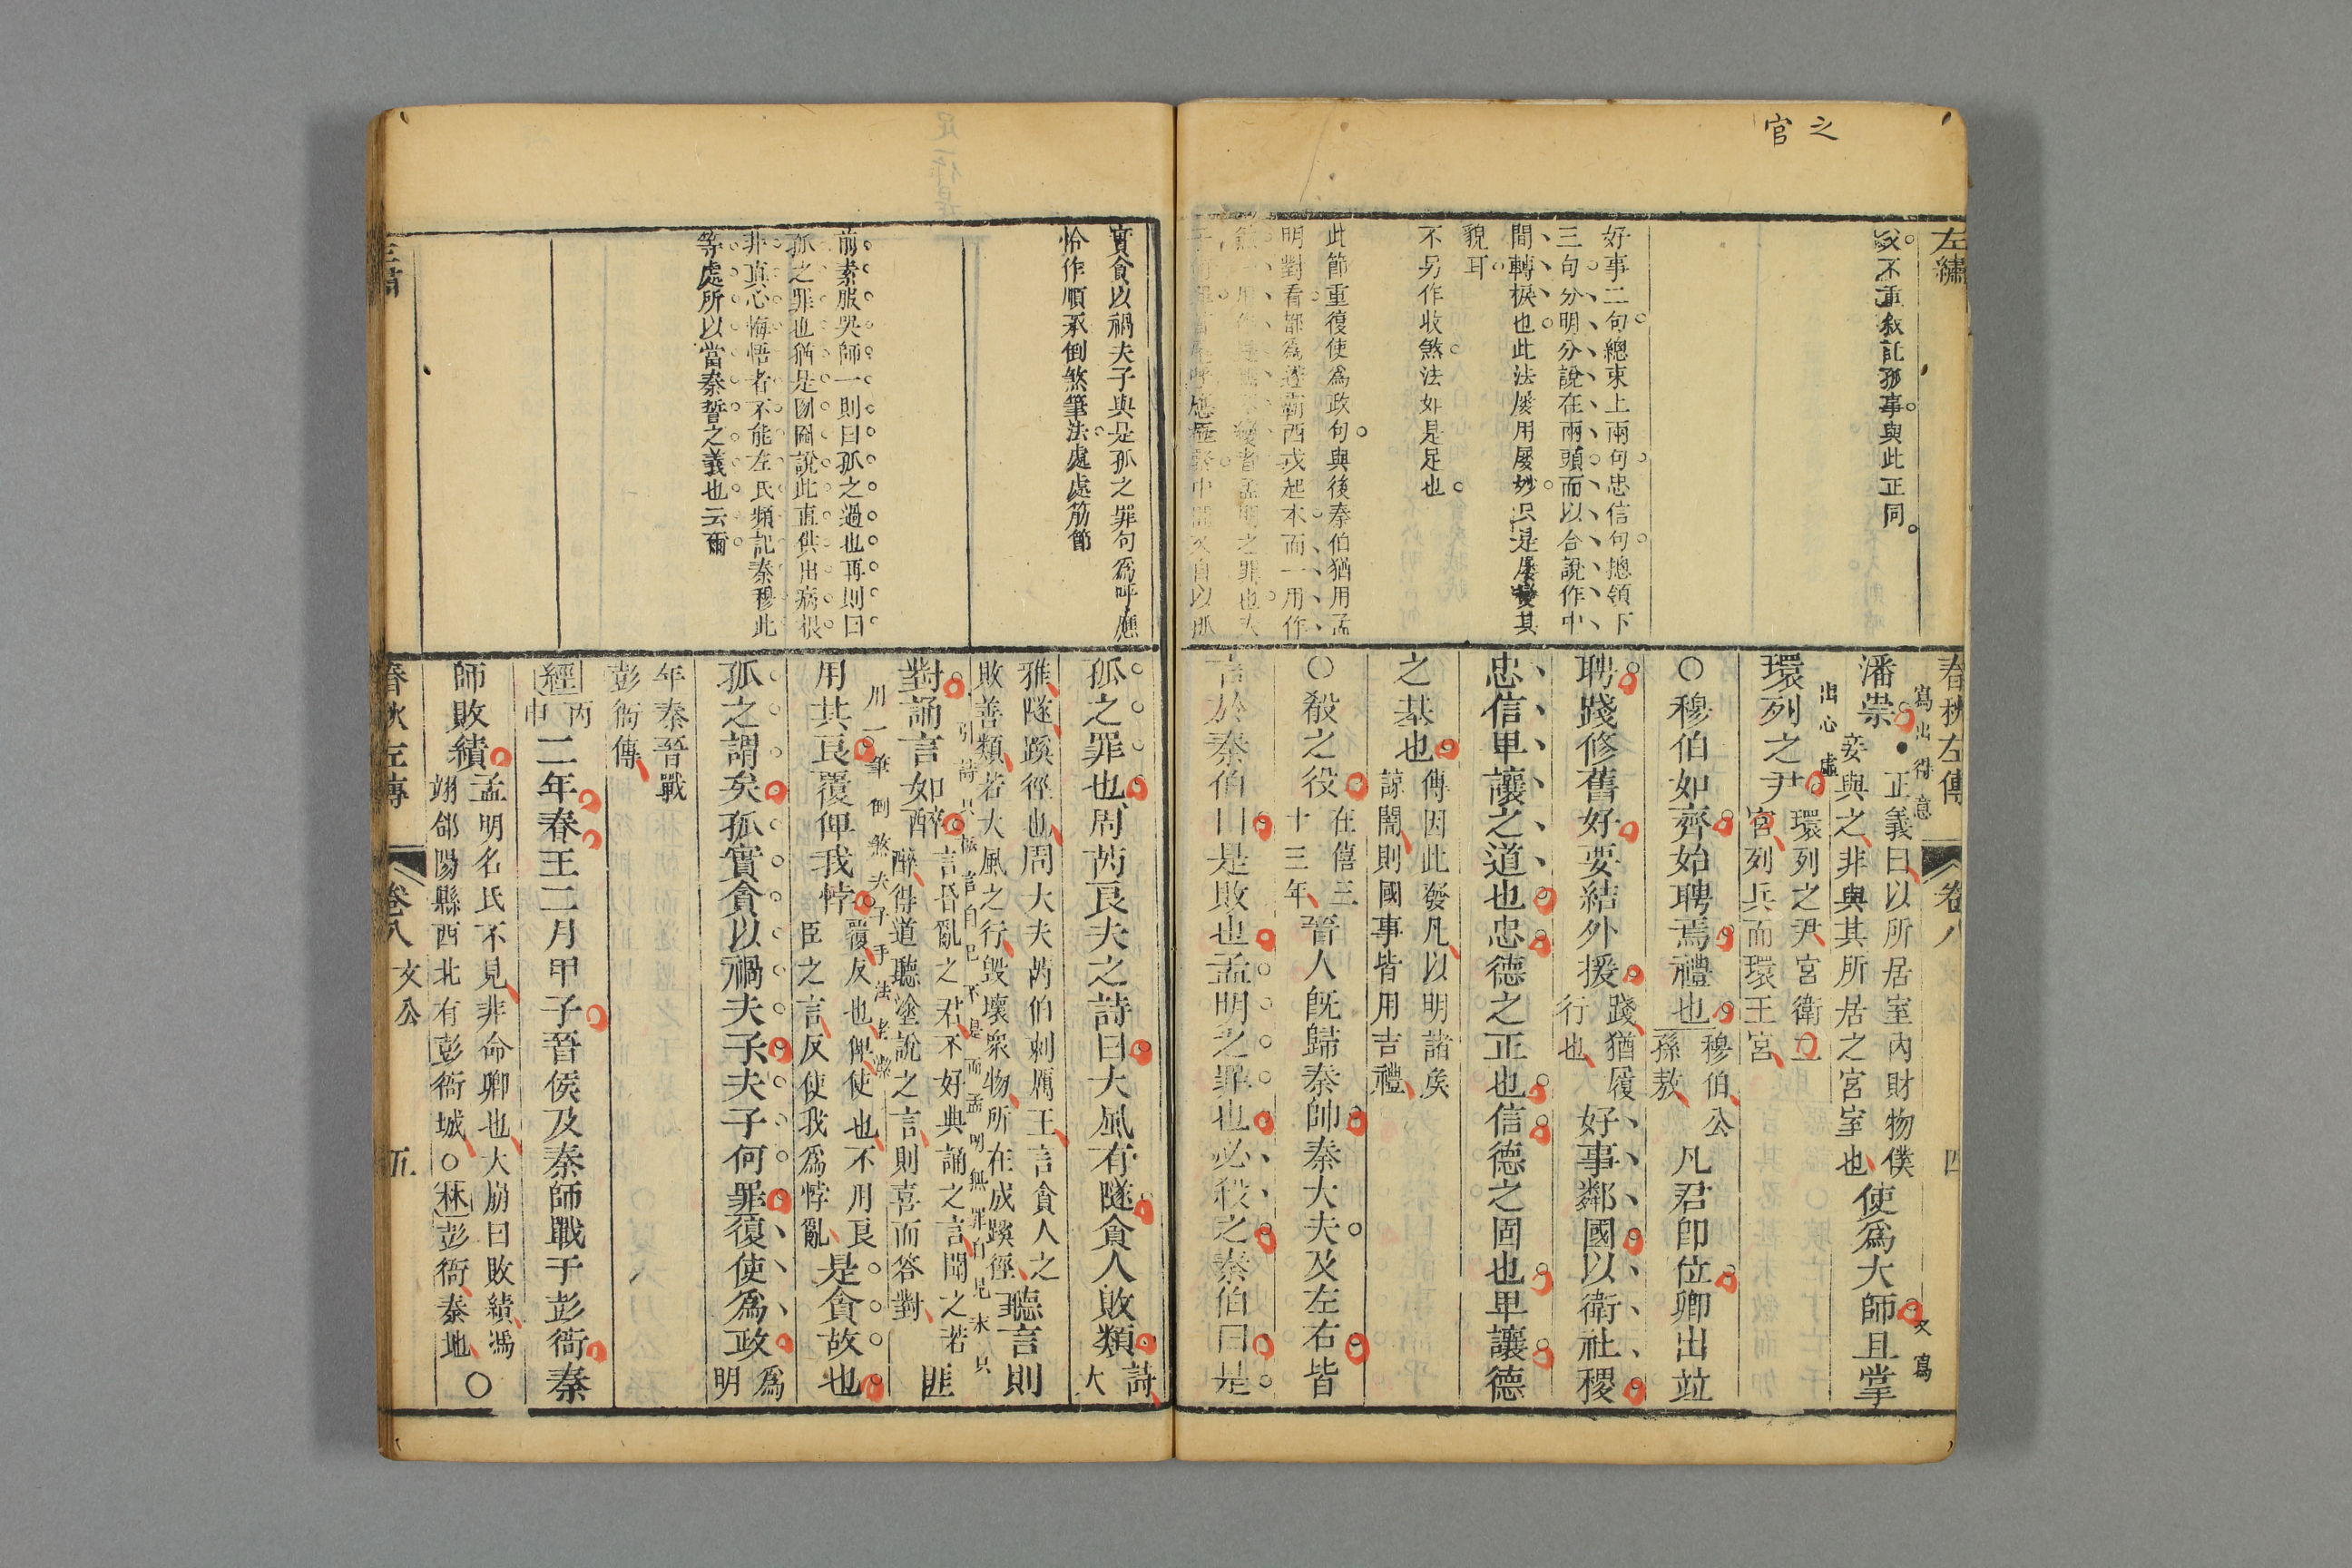 之
官
左繡
春秋左傳
卷八
四
又不重敘訌事與此正同
好事二句總束上兩句忠信句總領下
三句分明分說在兩頭而以合說作中
間轉棙也此法屢用屢妙只是屢變其
貌耳
不另作收煞法如是足也
此節重復使為政句與後秦伯猶用孟
明對看都為遂霸西戎起本而一用作
寫出得意
潘崇
正義曰以所居室內財物僕
妾與之非與其所居之宮室也
使為大師且掌
又寫
出心虛
環列之尹
環列之尹宮衛之
官列兵而環王宮
○穆伯如齊始聘焉禮也
穆伯公
孫敖
凡君卽位卿出竝
聘踐修舊好要結外援
踐猶履
行也
好事鄰國以衛社稷
忠信卑讓之道也忠德之正也信德之固也卑讓德
之基也
傳因此發凡以明諸矦
諒闇則國事皆用吉禮
○殽之役
在僖三
十三年
晉人旣歸秦帥秦大夫及左右皆
言於秦伯曰是敗也孟明之罪也必殺之秦伯曰是
實貪以禍夫子與是孤之罪句為呼應
恰作順承倒煞筆法處處筋節
前素服哭師一則曰孤之過也再則曰
孤之罪也猶是囫圇說此直供出病根
非真心悔悟者不能左氏頻記秦穆此
等處所以當秦誓之義也云爾
孤之罪也周芮良夫之詩曰大風有隧貪人敗類
詩大
雅隧蹊徑也周大夫芮伯刺厲王言貪人之
敗善類若大風之行毀壞衆物所在成蹊徑
聽言則
引詩只極言自己不是而孟明無罪自見末只
對誦言如醉
言昏亂之君不好典誦之言聞之若
醉得道聽塗說之言則喜而答對
匪
用一筆倒煞夫子手法老潔
用其良覆俾我悖
覆反也俾使也不用良
臣之言反使我為悖亂
是貪故也
孤之謂矣孤實貪以禍夫子夫子何罪復使為政
為明
年秦晉戰
彭衙傳
經
丙申
二年春王二月甲子晉侯及秦師戰于彭衙秦
師敗績
孟明名氏不見非命卿也大崩曰敗績馮
翊郃陽縣西北有彭衙城○林彭衙秦地
○
春秋左傳
卷八
文公
五